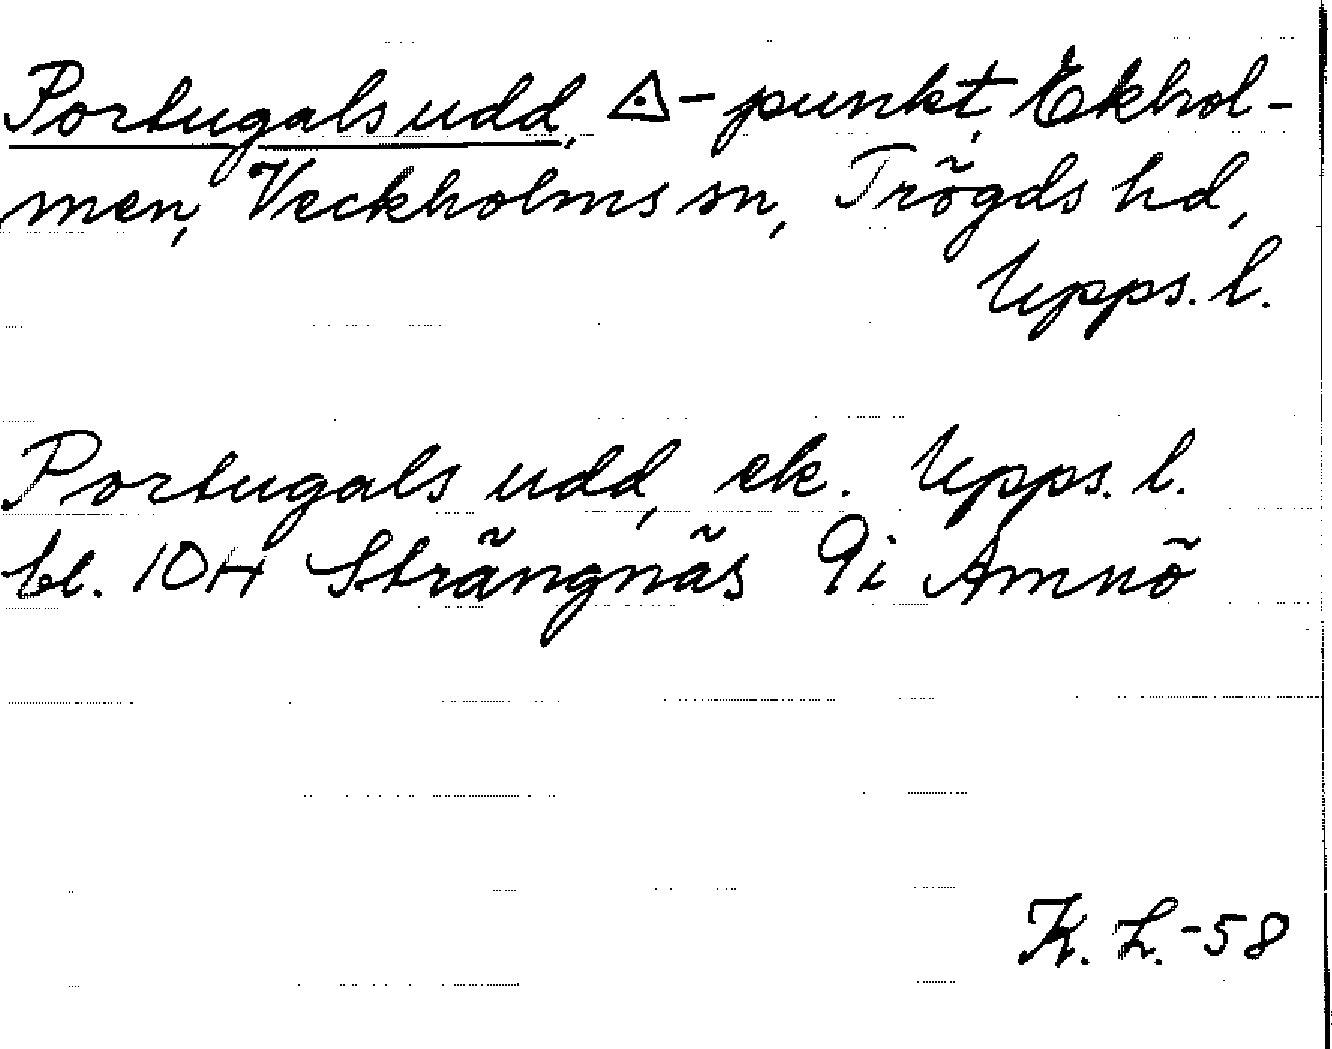 Portugals udd, △-punkt, Ekhol-
men, Veckholms sn, Trögds hd,
Upps. l.
Portugals udd, ek. Upps. l.
bl. 10H Strängnäs 9i Arnnö
K. L. -58